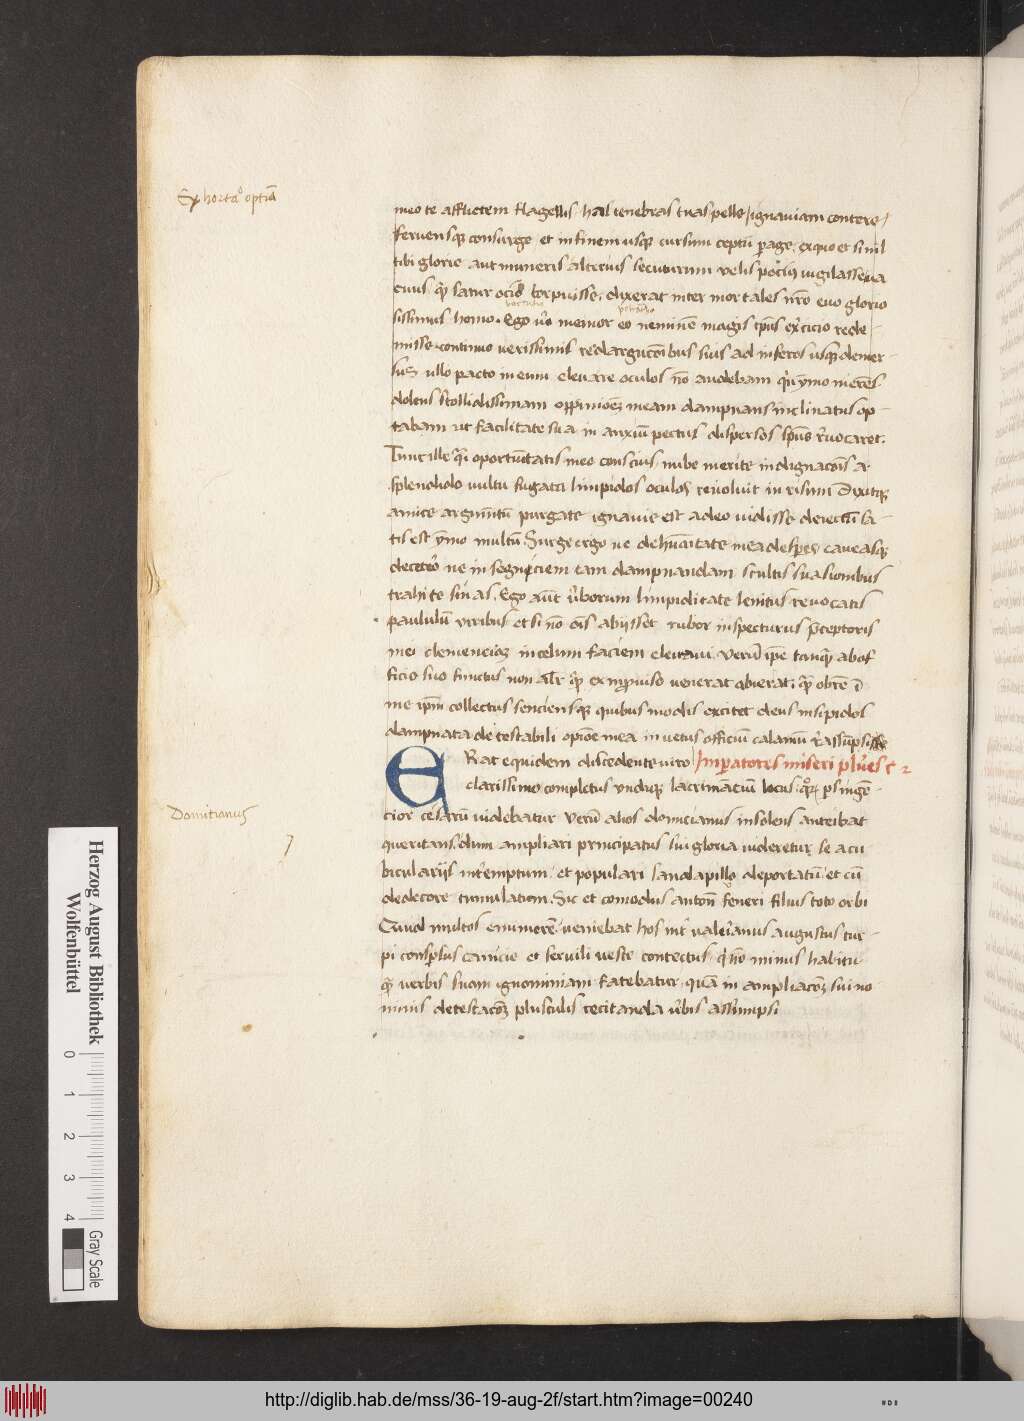 Exhorta° optīa
meo te afflictem flagellis. has tenebras tuas pelle / ignauiam contere /
feruensq consurge et in finem usq cursum ceptū perage. ex quo et simil
tibi glorie aut muneris alterius secuturum velis potius uigilasse ua
cuus qm̄ satur ociis torpuisse. dixerat inter mortales nr̄o euo glorio
sissimus homo. Ego vō memor eo neminem magis tp̄us exercicio rede
misse continuo uerissimis redargucōibus suis ad inferos usq demer
sus ullo pacto in eum eleuare oculos nō audebam qn ymo merēs
dolens stollidissimam oppinionē meam dampnans inclinatus op
tabam ut facilitate sua in anxiū pectus dispersos spūs reuocaret.
Tunc ille qi oportunitatis meo conscius nube merite indignacōis a
splendido uultu fugata limpidos oculos reuoluit in risum Dixitq
amice argumentū purgate ignauie est adeo uidisse deiectū sa
tis est ymo multū Surge ergo ne de humanitate mea desperes caueasq
decetero ne in segniciem tam dampnandam stultis suasionibus
trahi te sinas. Ego aūt verborum limpiditate lenitus reuocatis
paululū viribus et si nō oīs abijsset rubor inspecturus preceptoris
mei clemenciam in celum faciem eleuaui. Verū ipse tanq ab of
ficio suo functus non alr qm̄ ex improuiso venerat abierat.
me ipm̄ collectus senciensq quibus modis excitet deus insipidos
dampnata detestabili opiōe mea in vetus officiū calamū reassūpsisse
ERat equidem discedente uiro Imperatores miseri plures c 2
clarissimo completus undiq lacrimanciū locus.
cior cesarū uidebatur Verū alios domicianus insolens anteibat
Domitianus
queritans. dum ampliari principatus sui gloria uideretur se a cu
bicularijs interemptum. et populari sandapilla deportatū et cū
dedecore tumulatum. Sic et comodus anton feneri filius toto orbi
Quid multos enumerē. veniebat hos int valerianus augustus tur
pi consplsus canicie et seruili ueste contectus. minus habitu
qm̄ verbis suam ignominiam fatebatur. quā in ampliacōem sui no
minis detestacōem plusculis recitanda verbis assumpsi
Herzog August Bibliothek
Wolfenbüttel
0 1 2 3 4
Gray Scale
http://diglib.hab.de/mss/36-19-aug-2f/start.htm?image=00240